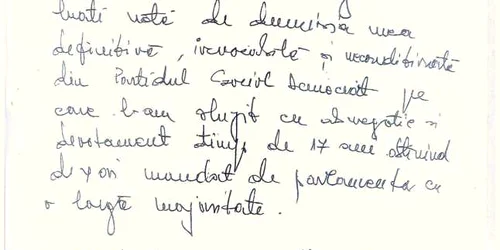 luați notă de demisia mea
definitivă, irevocabilă și necondiționată
din Partidul Social Democrat pe
care l-am slujit cu abnegație și
devotament timp de 17 ani obținind
de y ori mandat de parlamentar cu
o largă majoritate.